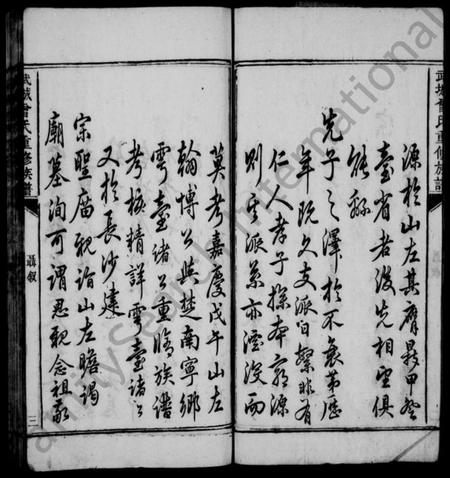 武城曾氏重修族譜
源於山左其膺晨甲登
臺省者後先相望俱
能承
先子之澤於不衰第歷
年既久支派日繁非有
仁人孝子探本窮源
則宗派几亦湮没而
莫考嘉慶戊午山左
翰博公與楚南寧鄉
雩臺諸公重脩族譜
考核精詳雩臺諸公
又於長沙建
宗聖廟親詣山左瞻謁
廟墓洵可謂恩親念祖敬
武城曾氏重修族譜
聶叙
三
FamilySearch International